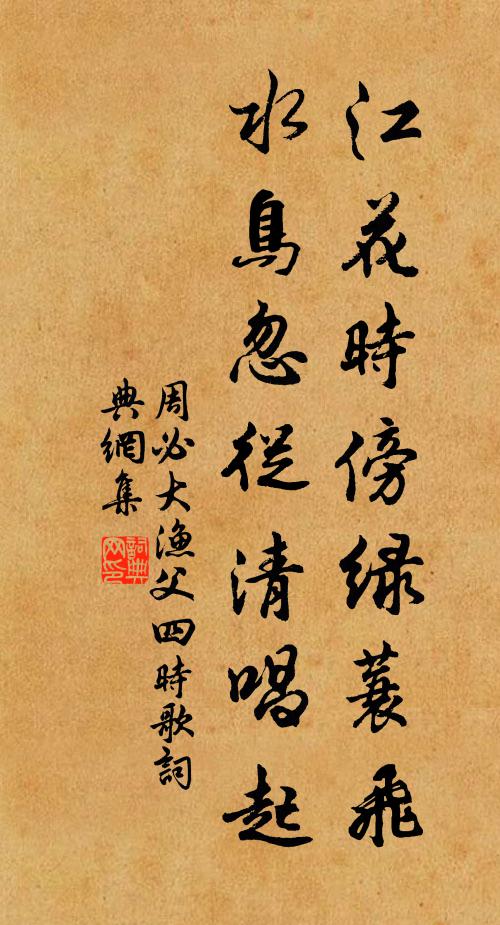 江花時傍绿蓑飛
水鳥忽從清唱起
周必大漁父四時歌詞
典網集
詞典
网印